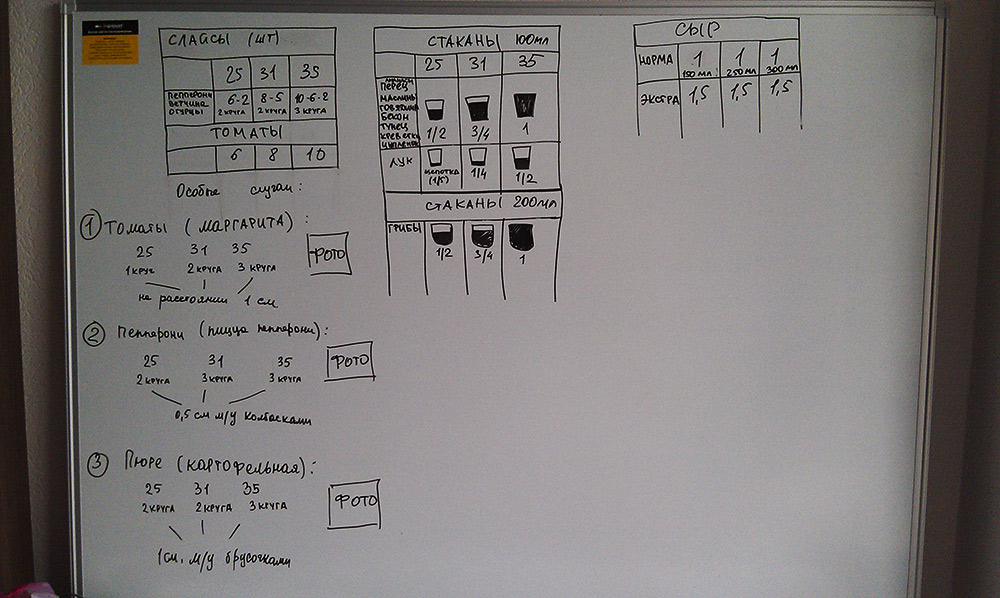 СЛАЙСЫ (ШТ)
25 31 35
ПЕППЕРОНИ
ВЕТЧИНА
ОГУРЦЫ
6-2 8-5 10-6-2
2 КРУГА 2 КРУГА 3 КРУГА
ТОМАТЫ
6 8 10
Особые случаи:
① ТОМАТЫ (МАРГАРИТА):
25 31 35
1 КРУГ 2 КРУГА 3 КРУГА
на расстоянии 1 см
ФОТО
② Пепперони (пицца пепперони):
25 31 35
2 КРУГА 3 КРУГА 3 КРУГА
0,5 см м/у колбасками
ФОТО
③ Пюре (КАРТОФЕЛЬНАЯ):
25 31 35
2 КРУГА 2 КРУГА 3 КРУГА
1 см. м/у брусочками
ФОТО
СТАКАНЫ 100 мл
25 31 35
ПЕРЕЦ
МАСЛИНЫ
ГОВЯДИНА
БЕКОН
ТУНЕЦ
КРЕВЕТКИ
ЦЫПЛЕНОК
1/2 3/4 1
ЛУК
ЩЕПОТКА
(1/5) 1/4 1/2
СТАКАНЫ 200 мл
ГРИБЫ
1/2 3/4 1
СЫР
НОРМА 1 1 1
150 МЛ 250 МЛ 300 МЛ
ЭКСТРА 1,5 1,5 1,5